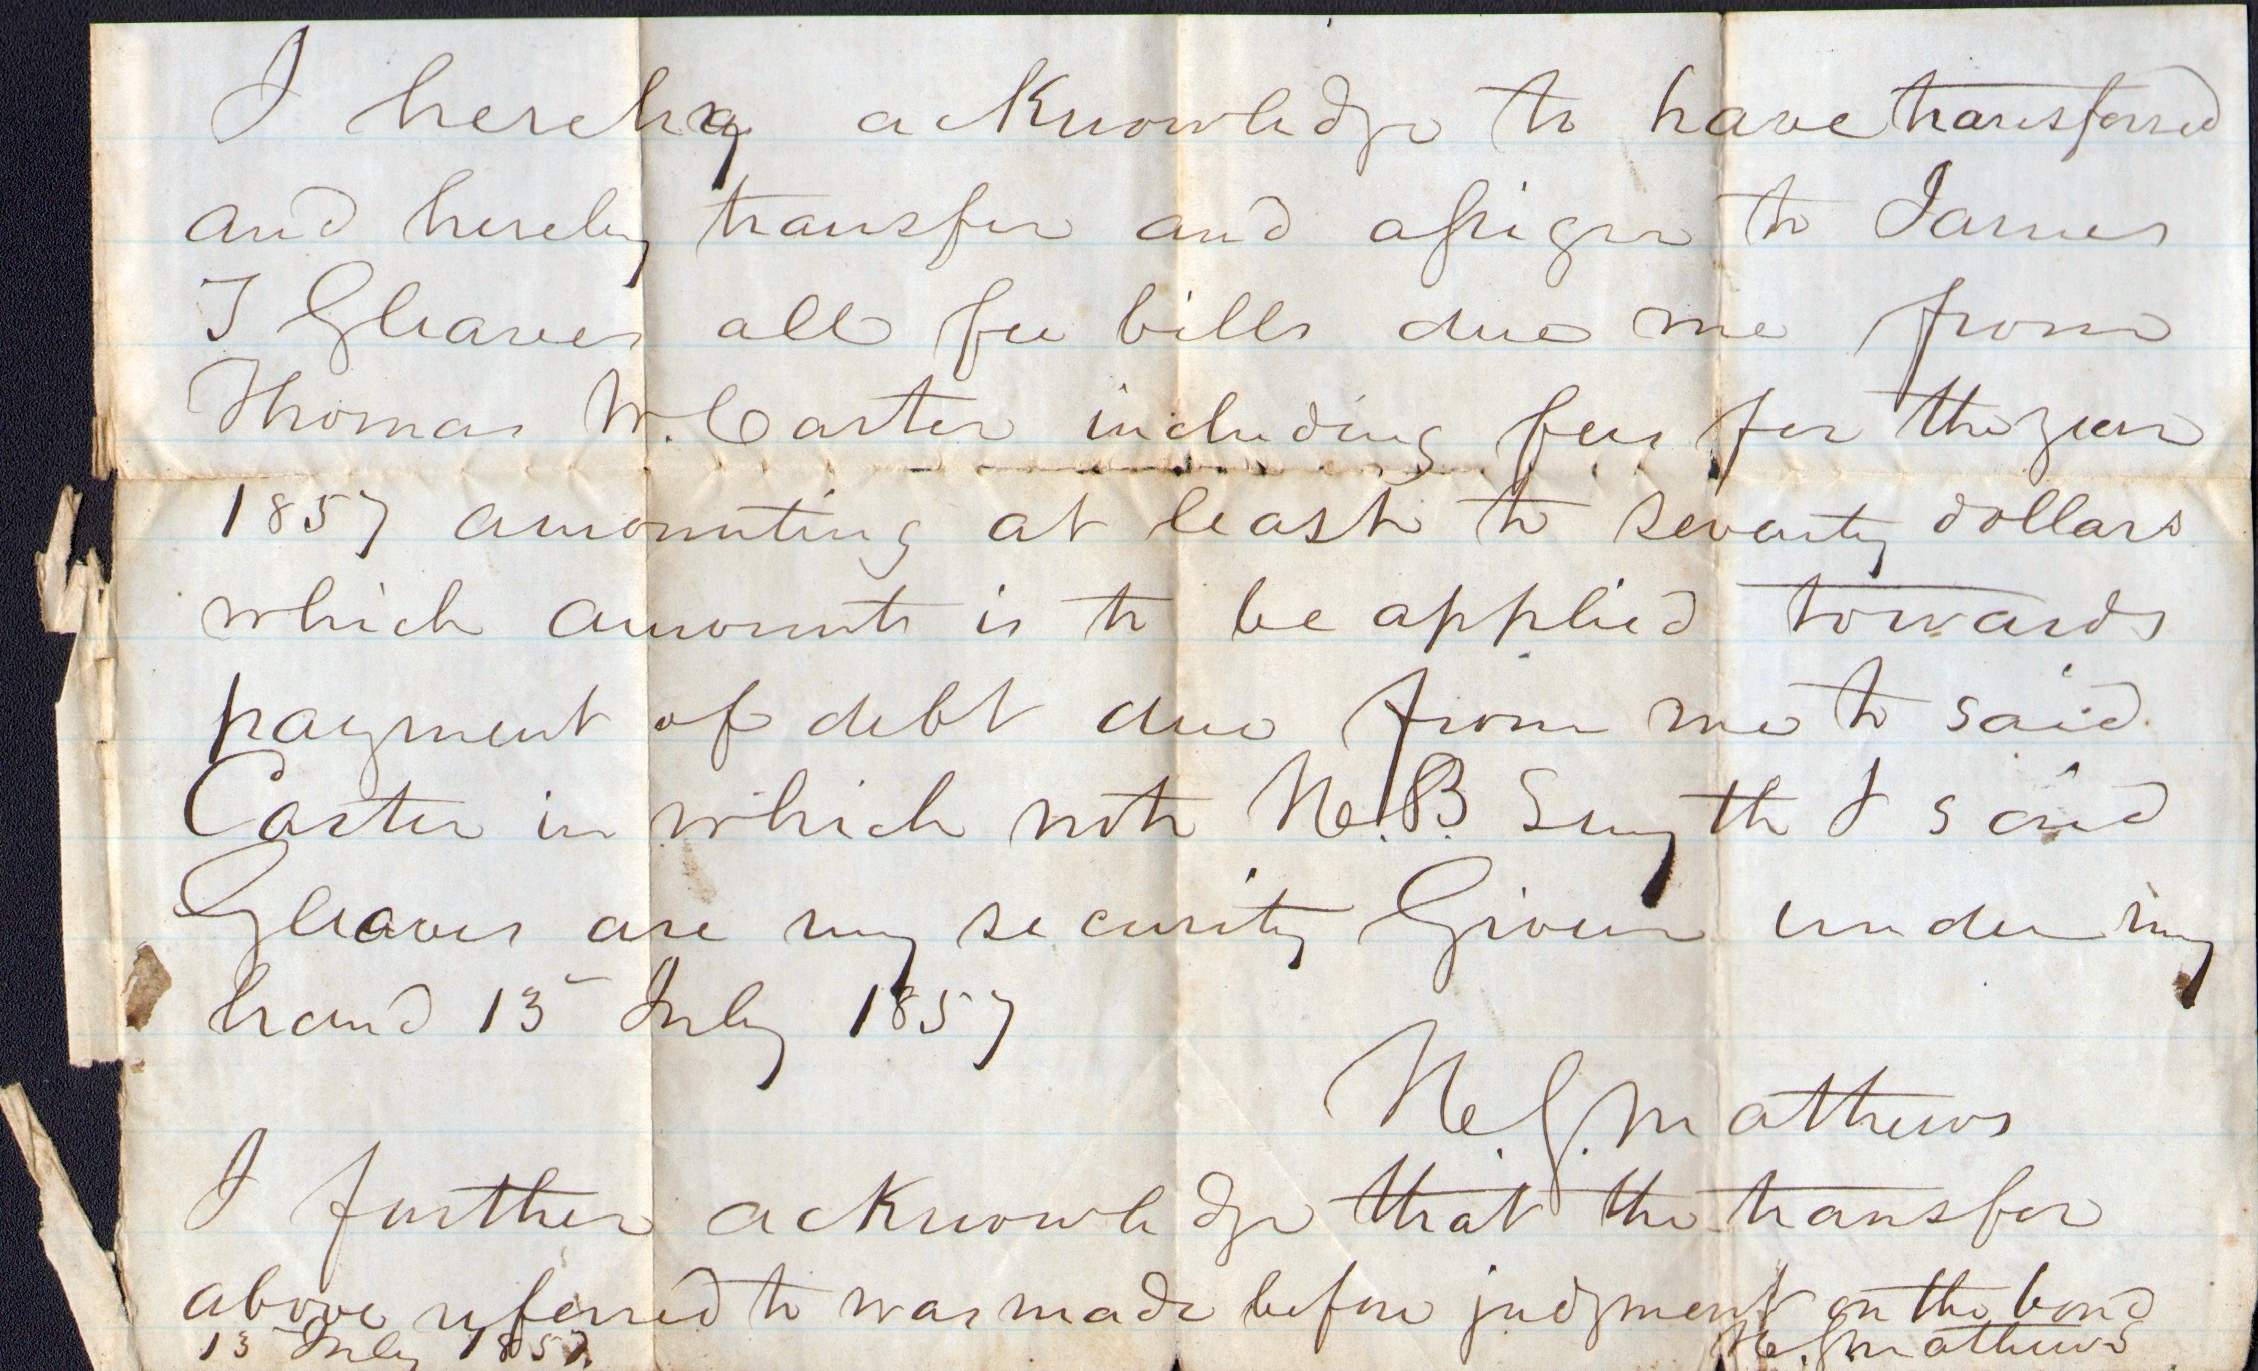 I hereby acknowledge to have transferred
and hereby transfer and assign to James
T Gleaves all fee bills due me from
Thomas W. Carter including fees for the year
1857 amounting at least to seventy dollars
which amount is to be applied towards
payment of debt due from me to said
Carter in which note H.B. Smyth & said
Gleaves are my security Given under my
hand 13 July 1857
H. G. Mathews
I further acknowledge that the transfer
above referred to was made before judgment on the bond
13 July 1857. H. G. Mathews